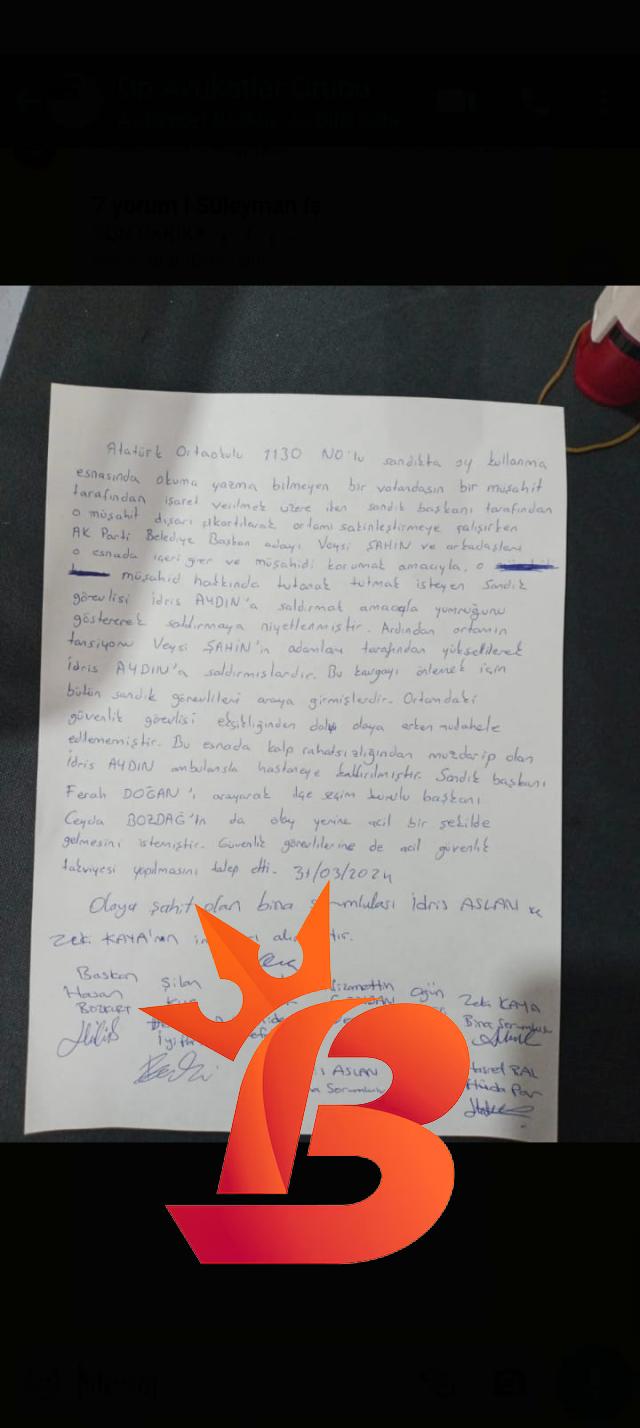 7 yorum | Süleyman İş
Atatürk Ortaokulu 1130 NO'lu sandıkta oy kullanma
esnasında okuma yazma bilmeyen bir vatandaşın bir müşahit
tarafından işaret verilmek üzere iken sandık başkanı tarafından
o müşahit dışarı çıkartılarak ortamı sakinleştirmeye çalışırken
AK Parti Belediye Başkan adayı Veysi ŞAHİN ve arkadaşları
o esnada içeri girer ve müşahidi korumak amacıyla, o
müşahid hakkında tutanak tutmak isteyen Sandık
görevlisi İdris AYDIN'a saldırmak amacıyla yumruğunu
göstererek saldırmaya niyetlenmiştir. Ardından ortamın
tansiyonu Veysi ŞAHİN'in adamları tarafından yükseltilerek
İdris AYDIN'a saldırmışlardır. Bu kavgayı önlemek için
bütün sandık görevlileri araya girmişlerdir. Ortamdaki
güvenlik görevlisi eksikliğinden dolayı olaya erken müdahele
edilememiştir. Bu esnada kalp rahatsızlığından muzdarip olan
İdris AYDIN ambulansla hastaneye kaldırılmıştır. Sandık başkanı
Ferah DOĞAN'ı arayarak ilçe seçim kurulu başkanı
Ceyda BOZDAĞ'ın da olay yerine acil bir şekilde
gelmesini istemiştir. Güvenlik görevlilerine de acil güvenlik
takviyesi yapılmasını talep etti. 31/03/2024
Olaya şahit olan bina sorumlusu İdris ASLAN ve
Zeki KAYA'nın
Başkan Şilan Nizamettin Ogün Zeki KAYA
Hasan Bina Sorumlusu
BOZKURT
İyi
ASLAN
Sorumlu
B